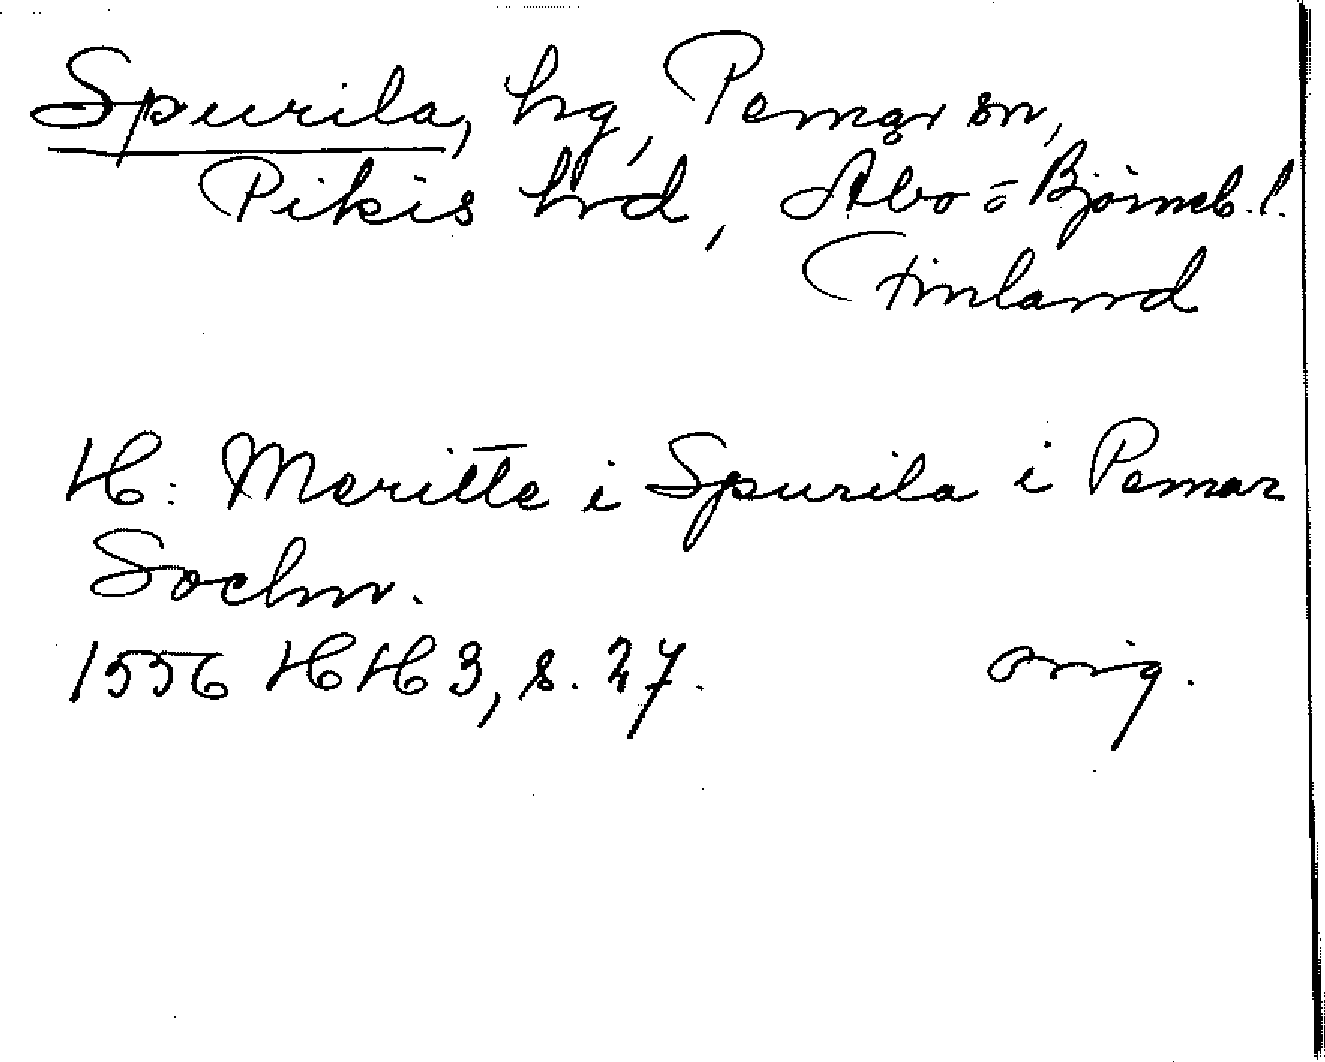 Spurila, hg, Pemar sn,
Pikis hrd, Åbo = Björneb. l.
Finland
H: Maritte i Spurila i Pemar
Sochn.
1556 HH 3, s. 27. orig.